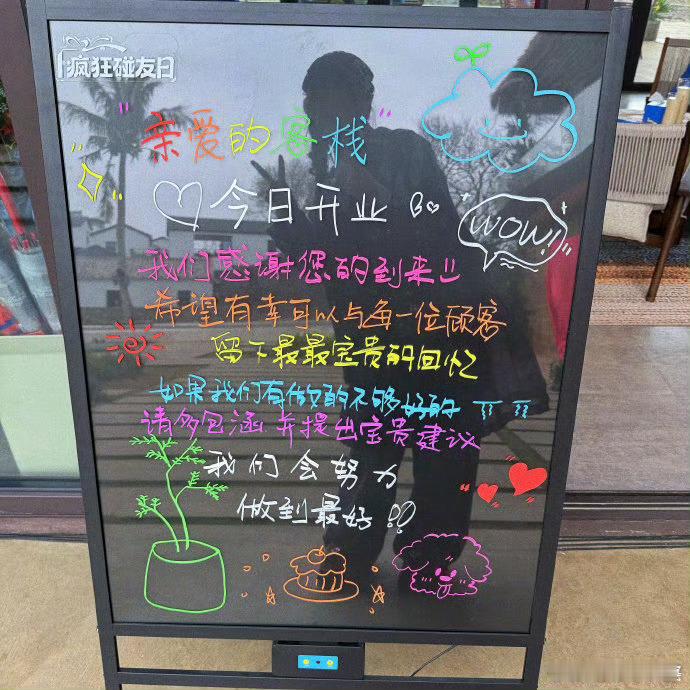 疯狂碰友日
亲爱的客栈
今日开业
WOW!
我们感谢您的到来!!
希望有幸可以与每一位顾客
留下最最宝贵的回忆
如果我们有做的不够好的
请多包涵 并提出宝贵建议
我们会努力
做到最好!!